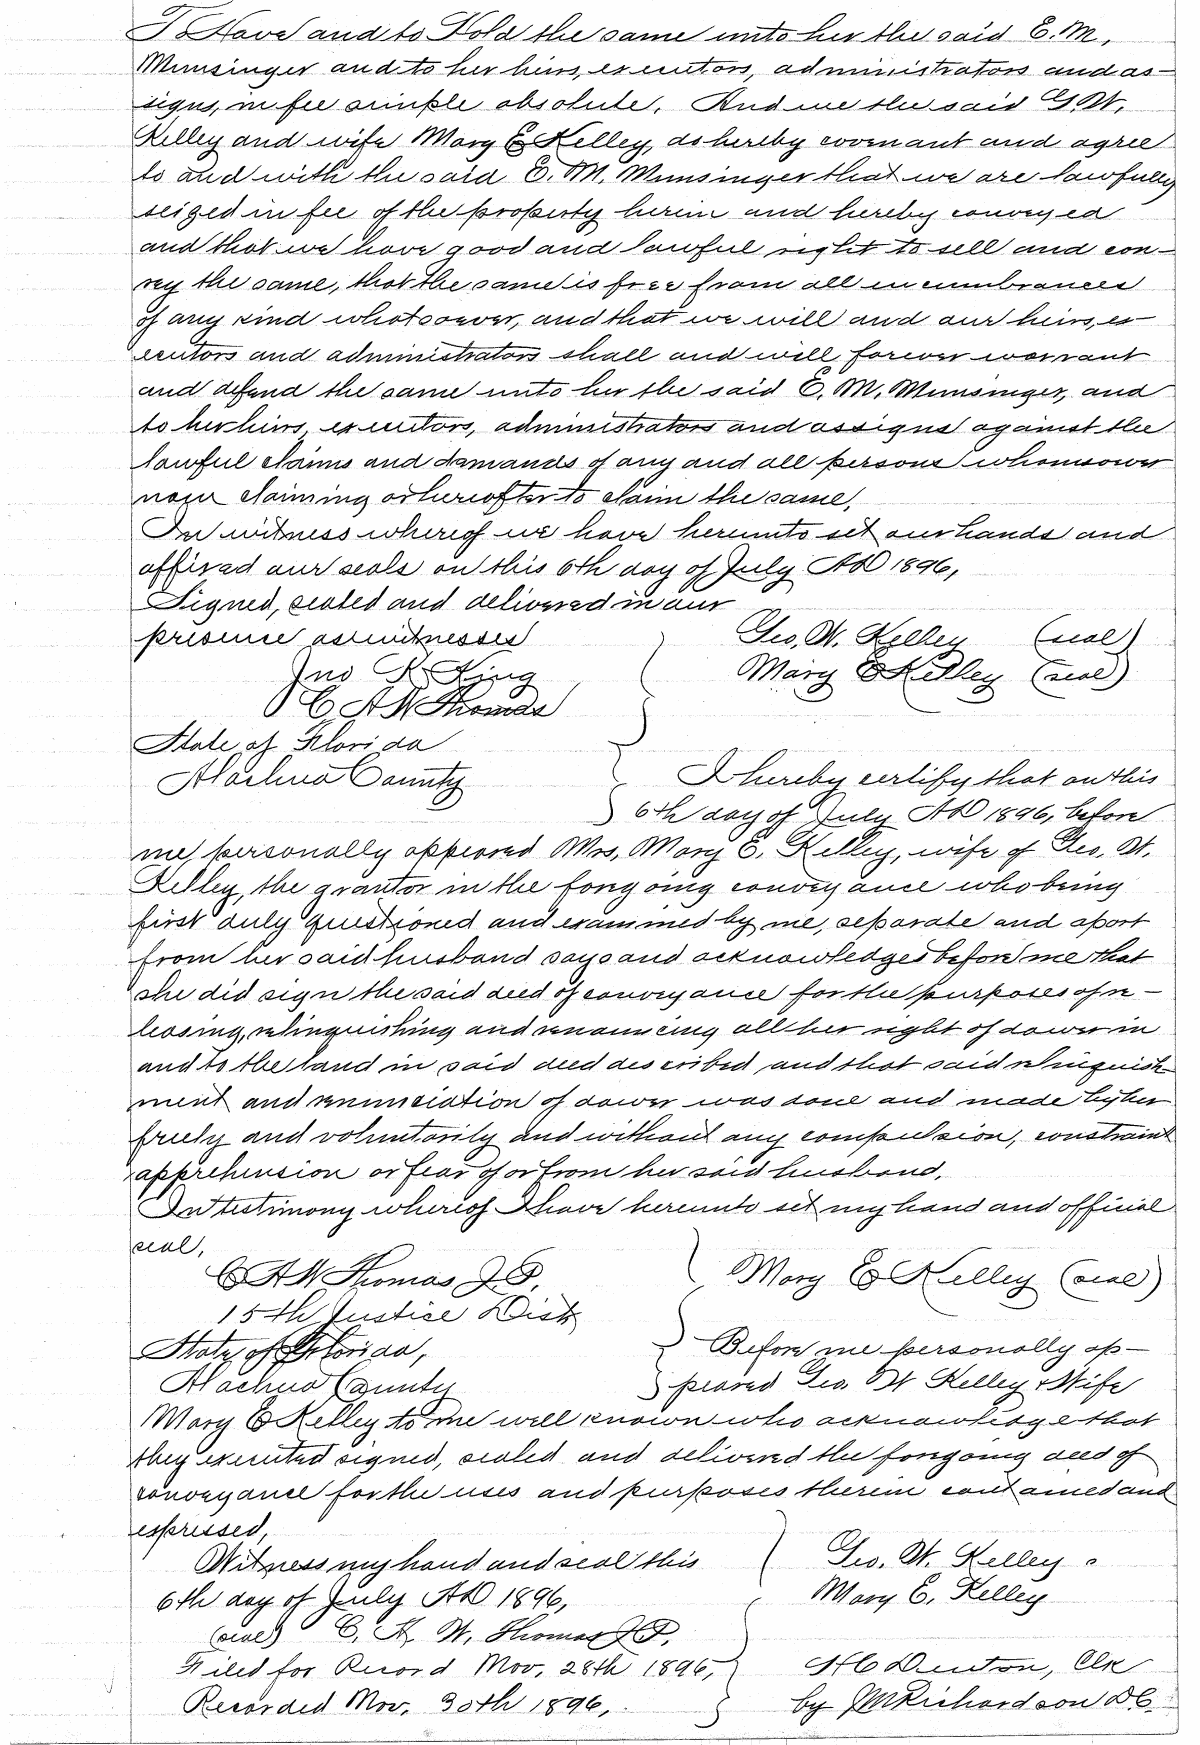 To Have and to Hold the same unto her the said E. M.
Munsinger and to her heirs, executors, administrators and as-
signs, in fee simple absolute. And we the said G. W.
Kelley and wife Mary E Kelley, do hereby covenant and agree
to and with the said E. M. Munsinger that we are lawfully
seized in fee of the property herein and hereby conveyed
and that we have good and lawful right to sell and con-
vey the same, that the same is free from all incumbrances
of any kind whatsoever, and that we will and our heirs, ex-
ecutors and administrators shall and will forever warrant
and defend the same unto her the said E. M. Munsinger, and
to her heirs, executors, administrators and assigns against the
lawful claims and demands of any and all persons whomsoever
now claiming or hereafter to claim the same.
In witness whereof we have hereunto set our hands and
affixed our seals on this 6th day of July AD 1896,
Signed, sealed and delivered in our
presence as witnesses
Geo. W. Kelley (seal)
Jno R. King
Mary E Kelley (seal)
C A W Thomas
State of Florida
Alachua County
I hereby certify that on this
6th day of July AD 1896, before
me, personally appeared Mrs. Mary E. Kelley, wife of Geo. W.
Kelley, the grantor in the foregoing conveyance who being
first duly questioned and examined by me, separate and apart
from her said husband says and acknowledges before me that
she did sign the said deed of conveyance for the purposes of re-
leasing, relinquishing and renouncing all her right of dower in
and to the land in said deed described and that said relinquish-
ment and renunciation of dower was done and made by her
freely and voluntarily and without any compulsion, constraint
apprehension or fear of or from her said husband.
In testimony whereof I have hereunto set my hand and official
seal,
C A W Thomas J. P.
Mary E Kelley (seal)
15th Justice Dist
State of Florida,
Alachua County
Before me personally ap-
peared Geo. W Kelley & Wife
Mary E Kelley to me well known who acknowledge that
they executed signed, sealed and delivered the foregoing deed of
conveyance for the uses and purposes therein contained and
expressed,
Witness my hand and seal this
6th day of July AD 1896,
Geo. W. Kelley
Mary E. Kelley
(seal) C. A. W. Thomas J. P.
Filed for Record Nov. 28th 1896,
Recorded Nov. 30th 1896,
H C Denton, Clk
by J M Richardson D. C.